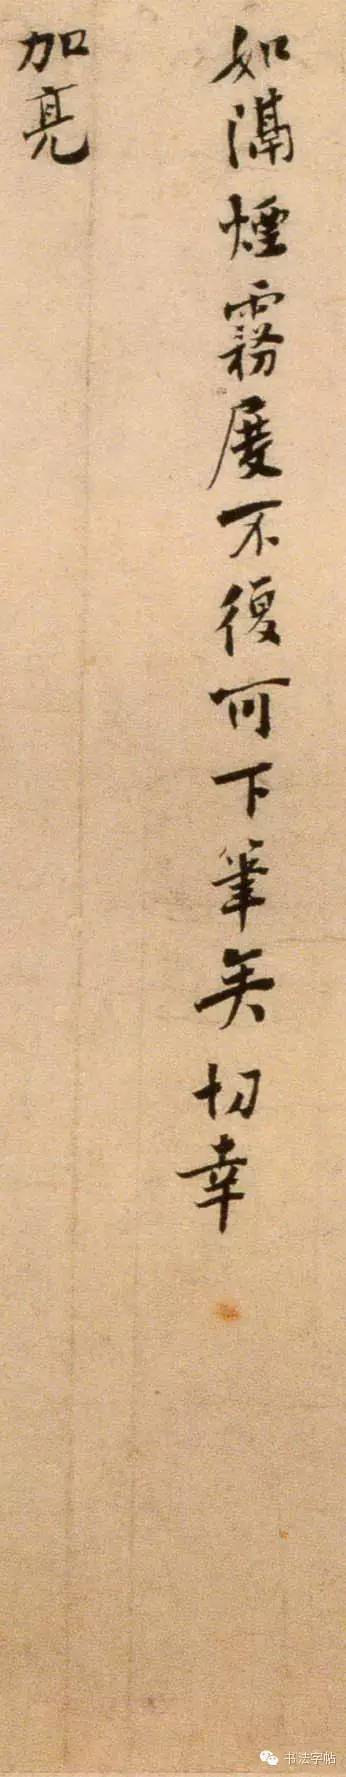 如隔煙霧屢不復可下筆矣切幸
加亮
书法字帖